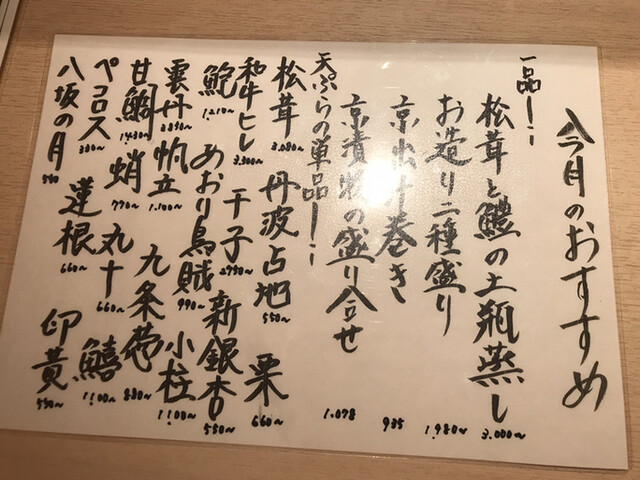 今月のおすすめ
一品ー:
松茸と鱧の土瓶蒸し 3.000～
お造り二種盛り 1,980～
京出汁巻き 935
京漬物の盛り合せ 1.078
天ぷらの単品ー:
松茸 3.080～ 丹波占地 550～ 栗 660～
和牛ヒレ 3.300～ 干子 2750～ 新銀杏 550～
鮑 1.210～ あおり烏賊 990～ 小柱 1100～
雲丹 3850～ 帆立 1.100～ 九条葱 880～
甘鯛 1430～ 蛸 770～ 丸十 660～ 鱚 1100～
ペコロス 380～ 蓮根 660～ 印黄 550～
八坂の月 550